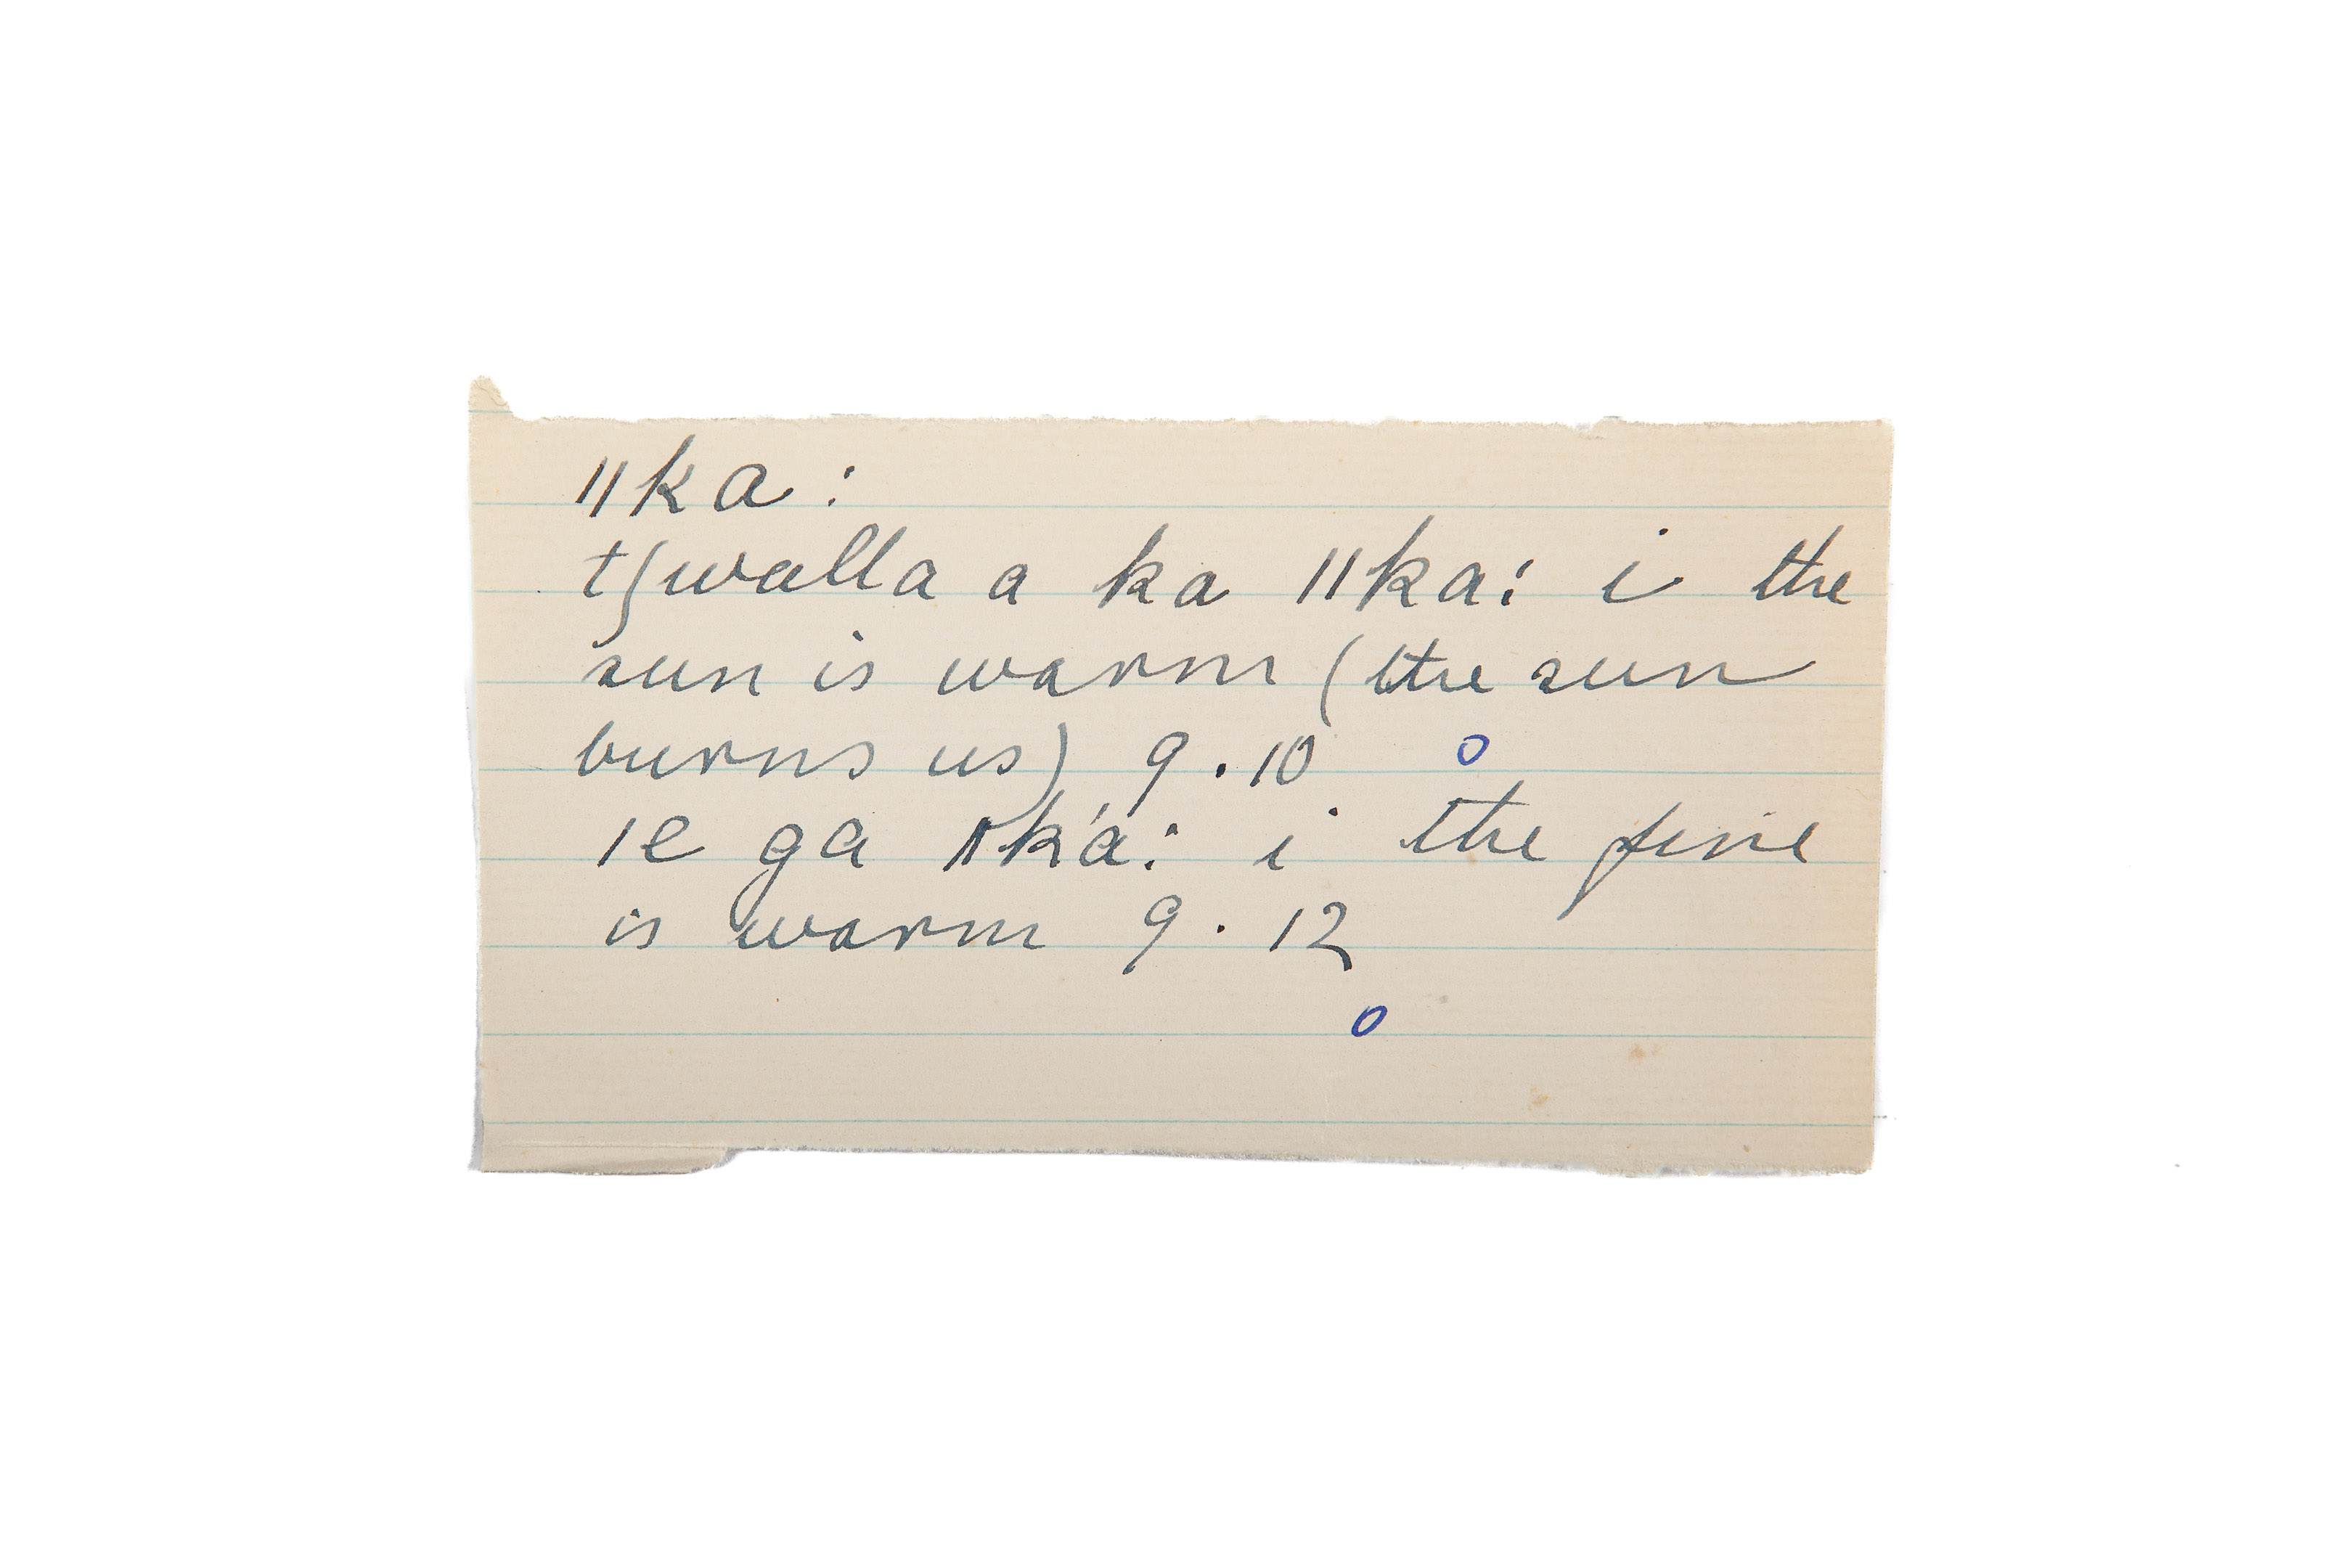 ǁka:
tʃwalla a ka ǁka: i the
sun is warm (the sun
burns us) 9.10 o
ǀe ga ǁk'a: i the fire
is warm 9.12
o